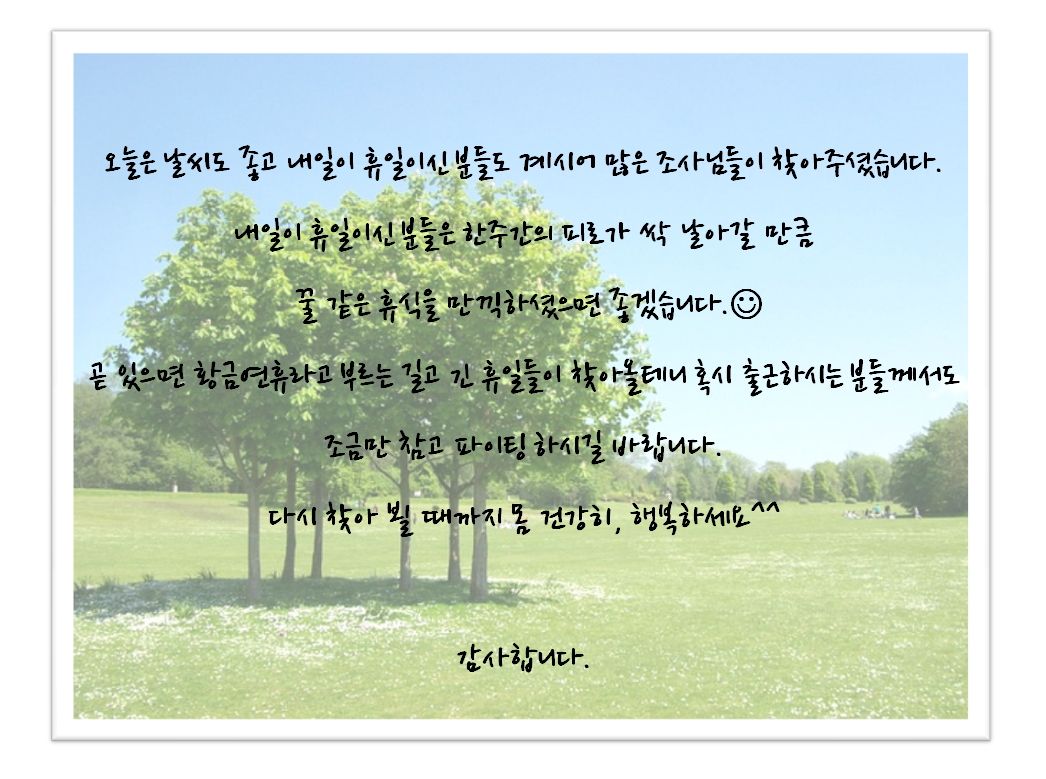 오늘은 날씨도 좋고 내일이 휴일이신분들도 계시어 많은 조사님들이 찾아주셨습니다.
내일이 휴일이신분들은 한주간의 피로가 싹 날아갈 만큼
꿀 같은 휴식을 만끽하셨으면 좋겠습니다.☺
곧 있으면 황금연휴라고 부르는 길고 긴 휴일들이 찾아올테니 혹시 출근하시는분들께서도
조금만 참고 파이팅 하시길 바랍니다.
다시 찾아 뵐 때까지 몸 건강히, 행복하세요^^
감사합니다.